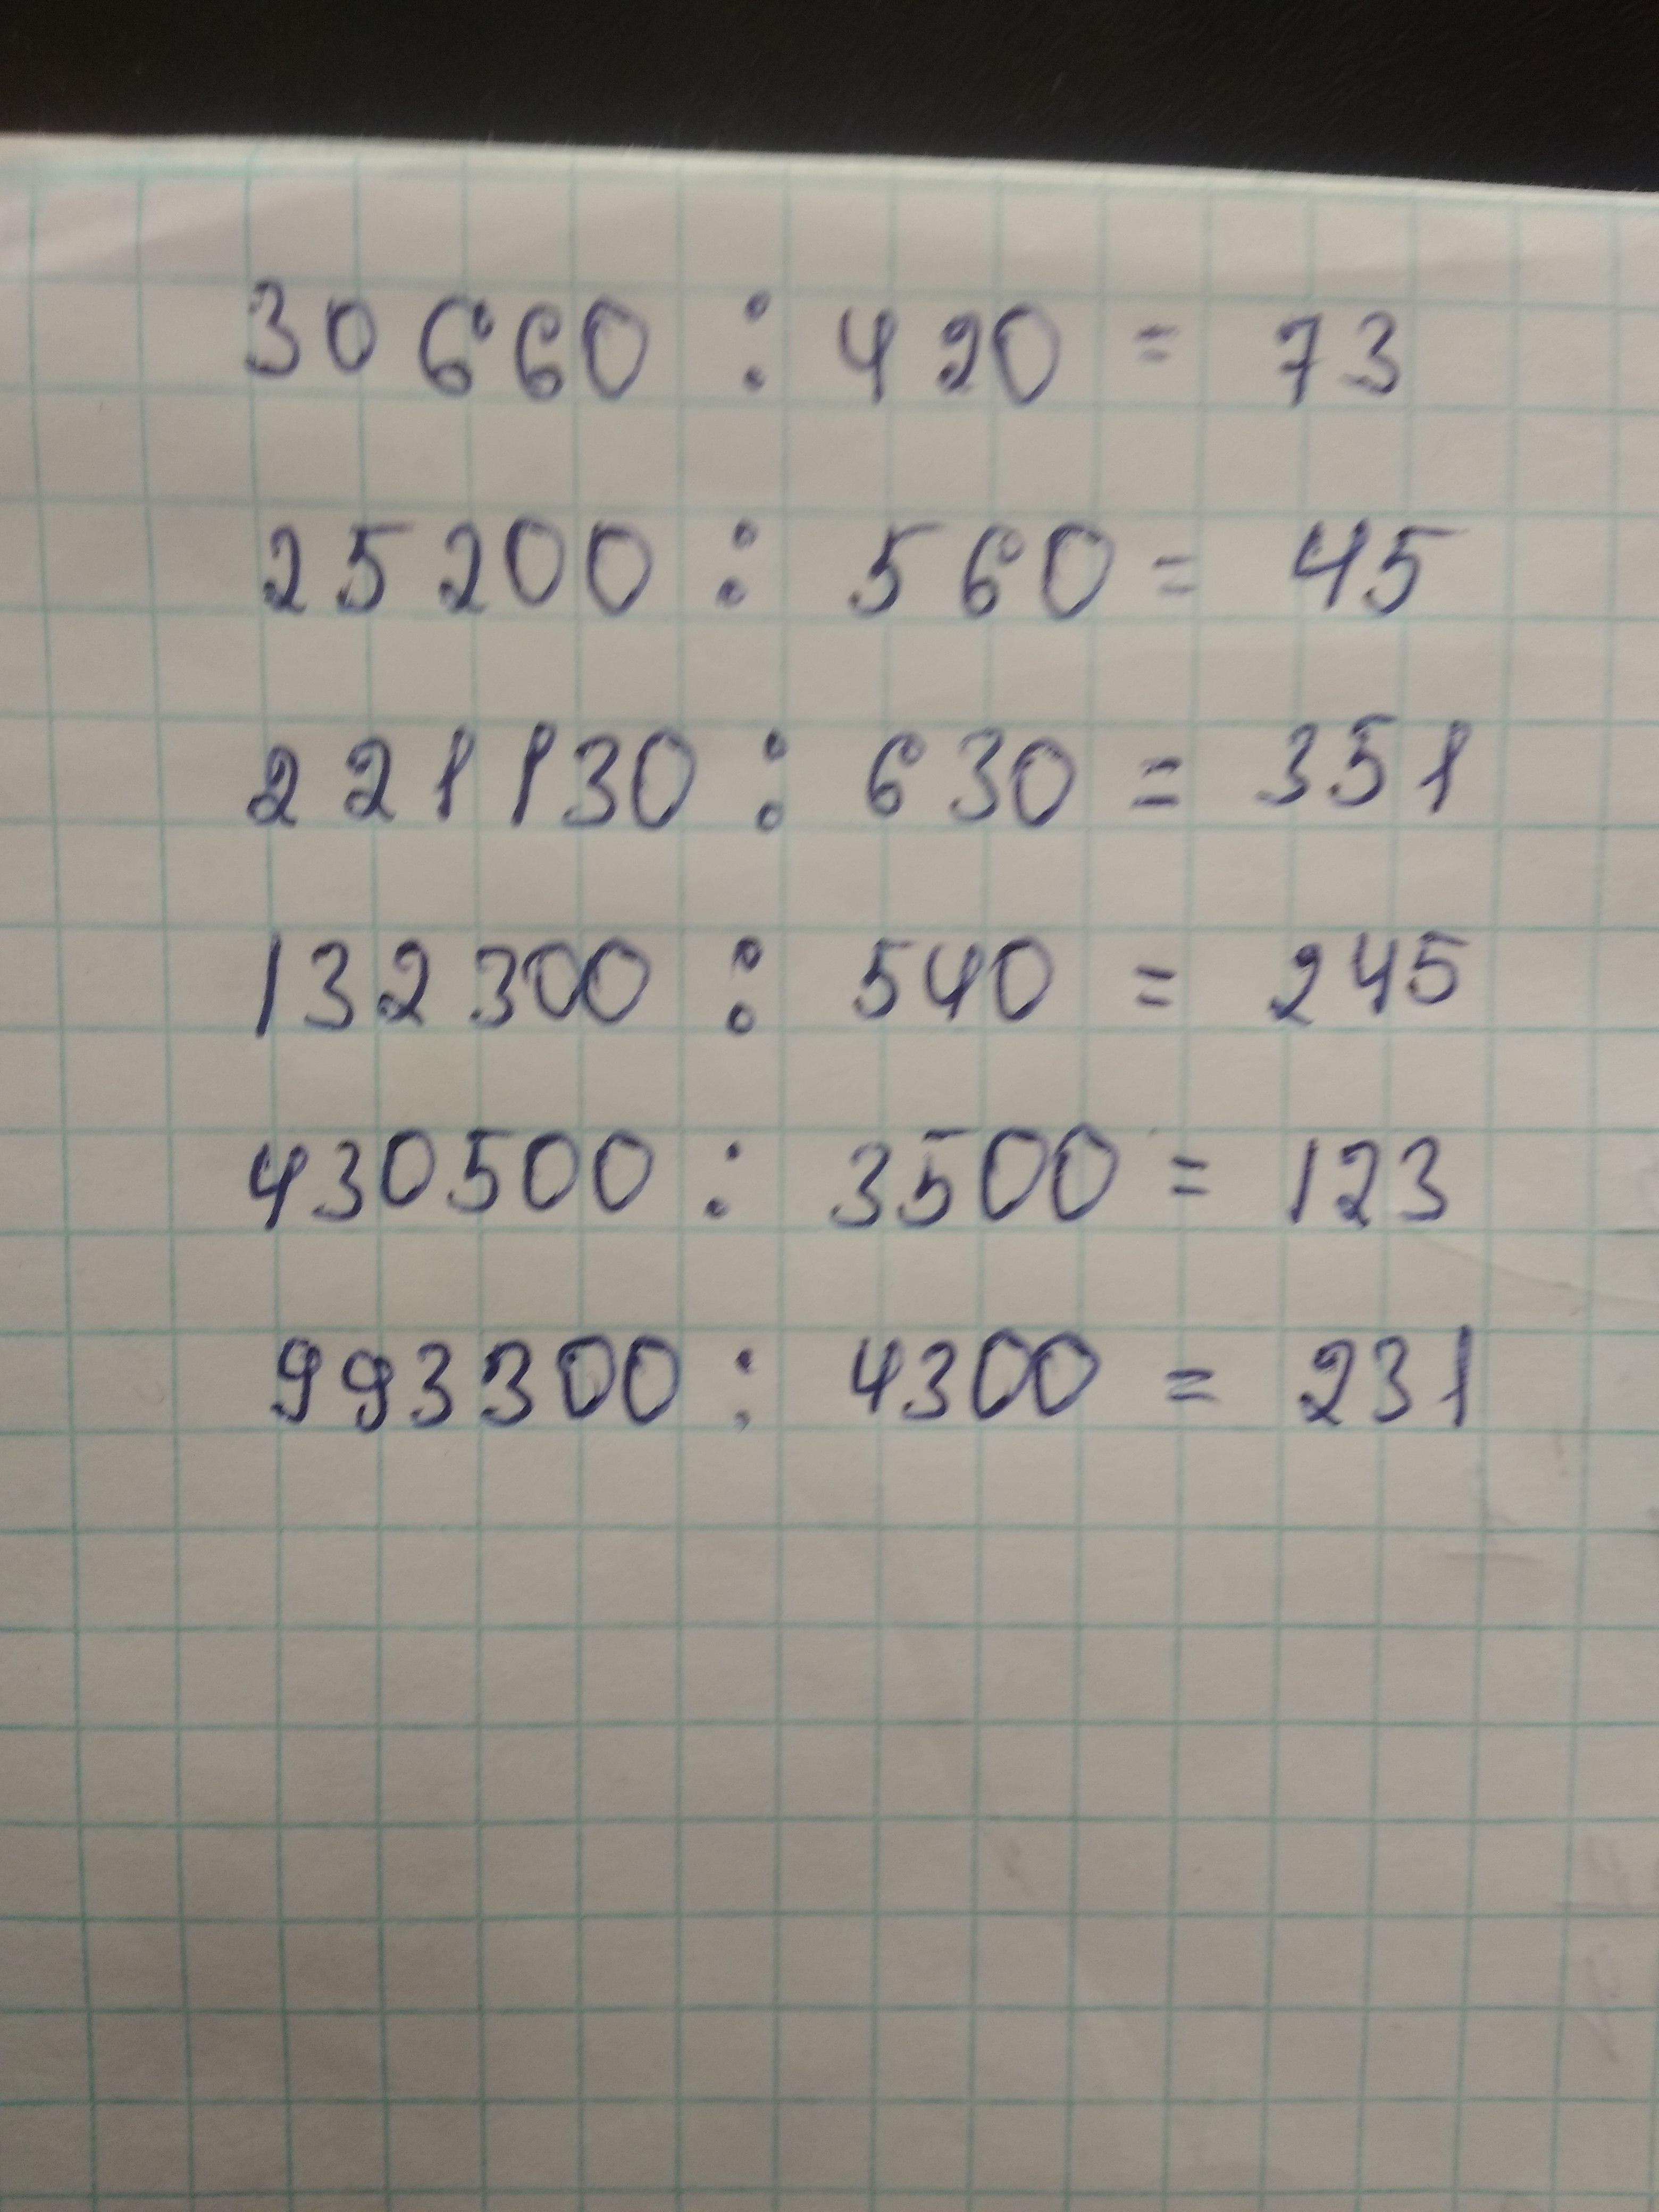 30660 : 420 = 73
25200 : 560 = 45
221130 : 630 = 351
132300 : 540 = 245
430500 : 3500 = 123
993300 : 4300 = 231